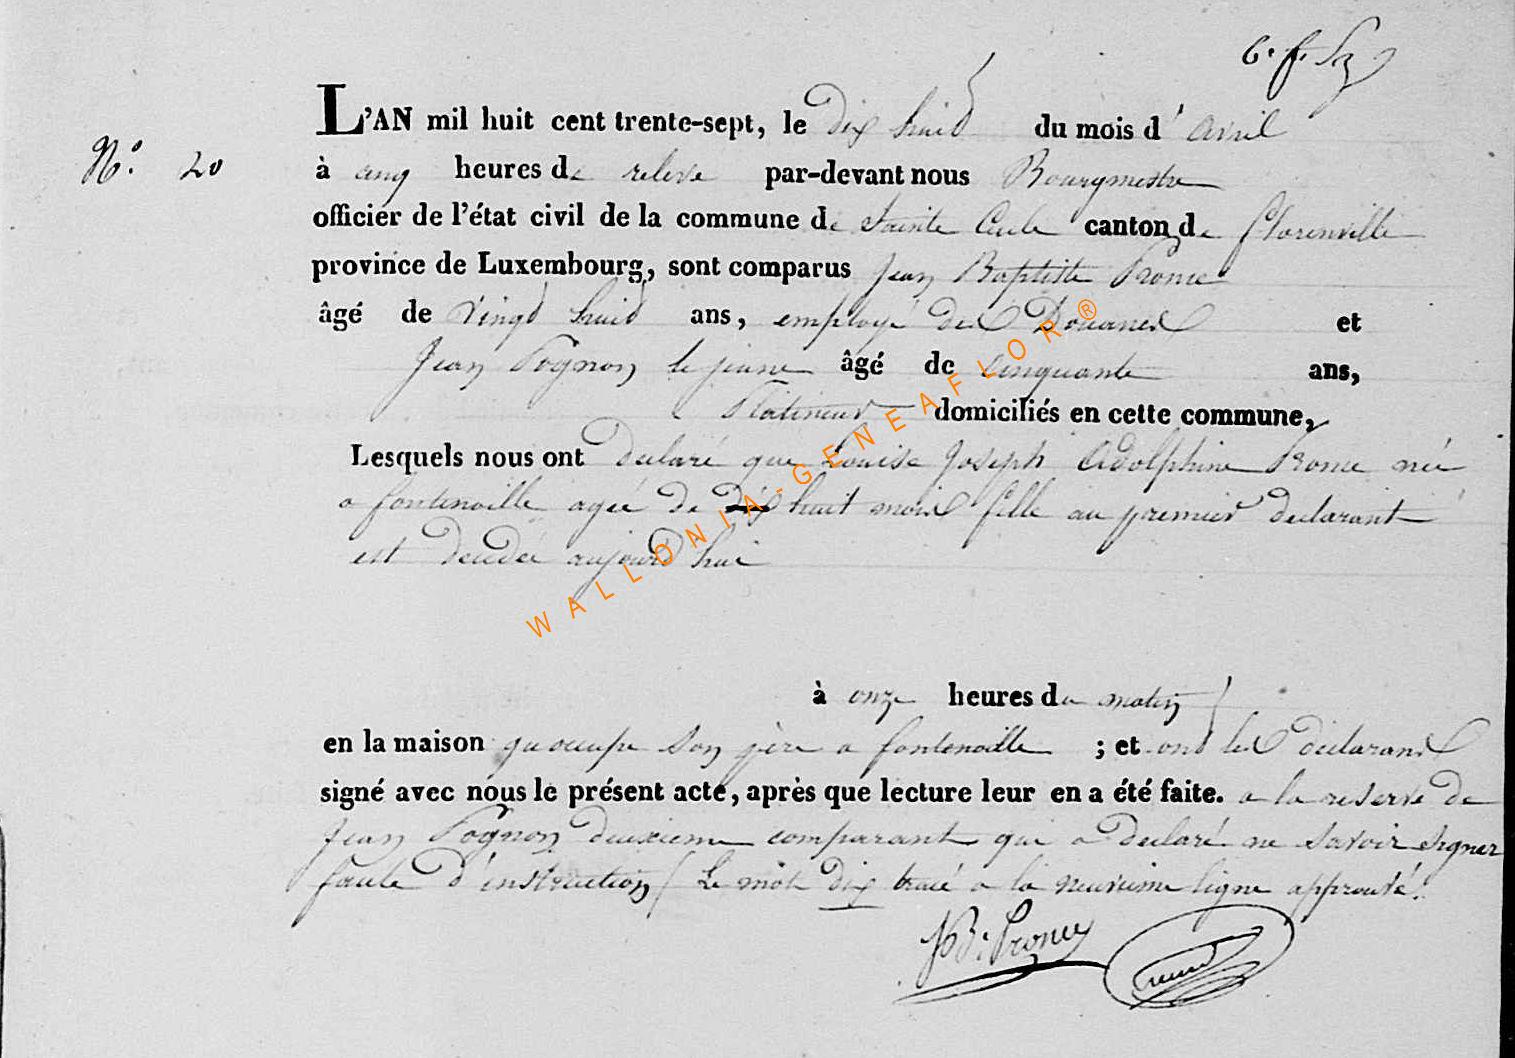 N.° 20
L'AN mil huit cent trente-sept, le dix huit du mois d' avril
à cinq heures de relevé par-devant nous Bourgmestre
officier de l'état civil de la commune de Sainte Cécile canton de florenville
province de Luxembourg, sont comparus Jean Baptiste Prome
âgé de vingt huit ans, employé des Douanes et
Jean Pognon le jeune âgé de cinquante ans,
Platineur domiciliés en cette commune,
Lesquels nous ont declaré que Louise Joseph Adolphine Prome née
a fontenoille agée de dix huit mois fille au premier declarant
est decedée aujourd hui
à onze heures du matin
en la maison qu occupe son père a fontenoille ; et ont les declarans
signé avec nous le présent acte, après que lecture leur en a été faite. a la reserve de
Jean Pognon deuxieme comparant qui a declaré ne savoir signer
faute d'instruction / Le mot dix tracé a la neuvieme ligne approuvé.
WALLONIA-GENEAFLOR®